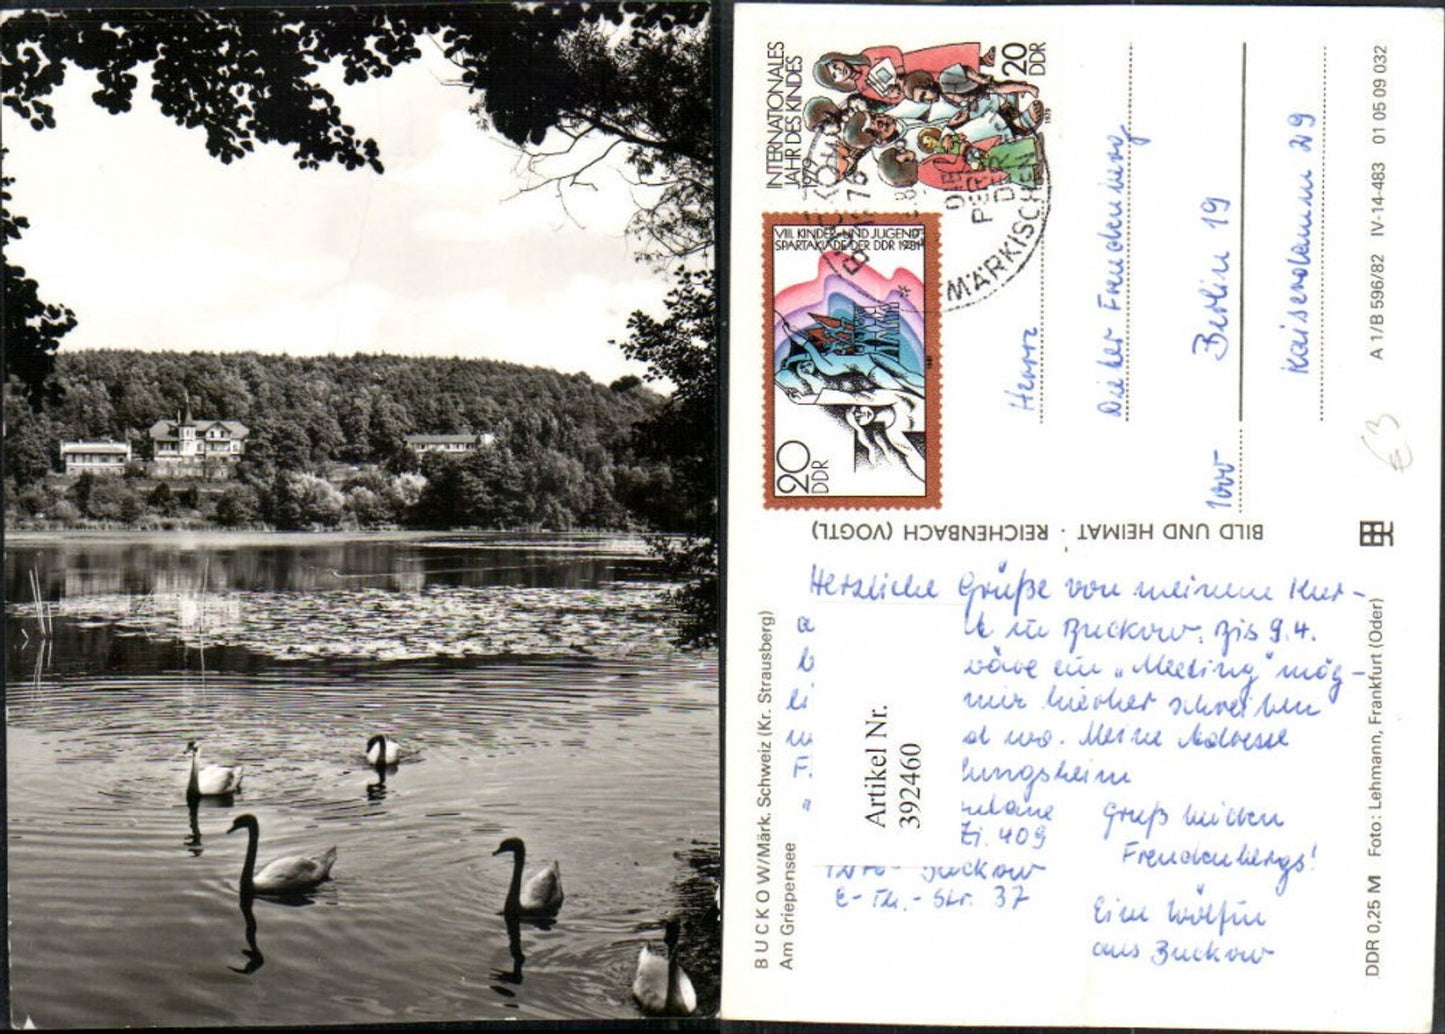 INTERNATIONALES
JAHR DES KINDES
1979
20
DDR
1979
VIII. KINDER- UND JUGEND-
SPARTAKIADE DER DDR 1981
20
DDR
1981
PERLE
DER
MÄRKISCHEN
Herrn
Dieter Freudenberg
Berlin 19
Kaiserdamm 29
1000
€3
A 1/B 596/82 IV-14-483 01 05 09 032
BILD UND HEIMAT · REICHENBACH (VOGTL)
Herzliche Grüße von meinem Kur-
in Buckow. Bis 9.4.
wäre ein „Meeting“ mög-
mir hierher schreiben
wo. Meine Adresse
Zi. 409
Buckow
E-Th.-Str. 37
Gruß beiden
Freudenbergs!
Eine Wölfin
aus Buckow
Artikel Nr.
392460
BUCKOW/Märk. Schweiz (Kr. Strausberg)
Am Griepensee
DDR 0,25 M Foto: Lehmann, Frankfurt (Oder)